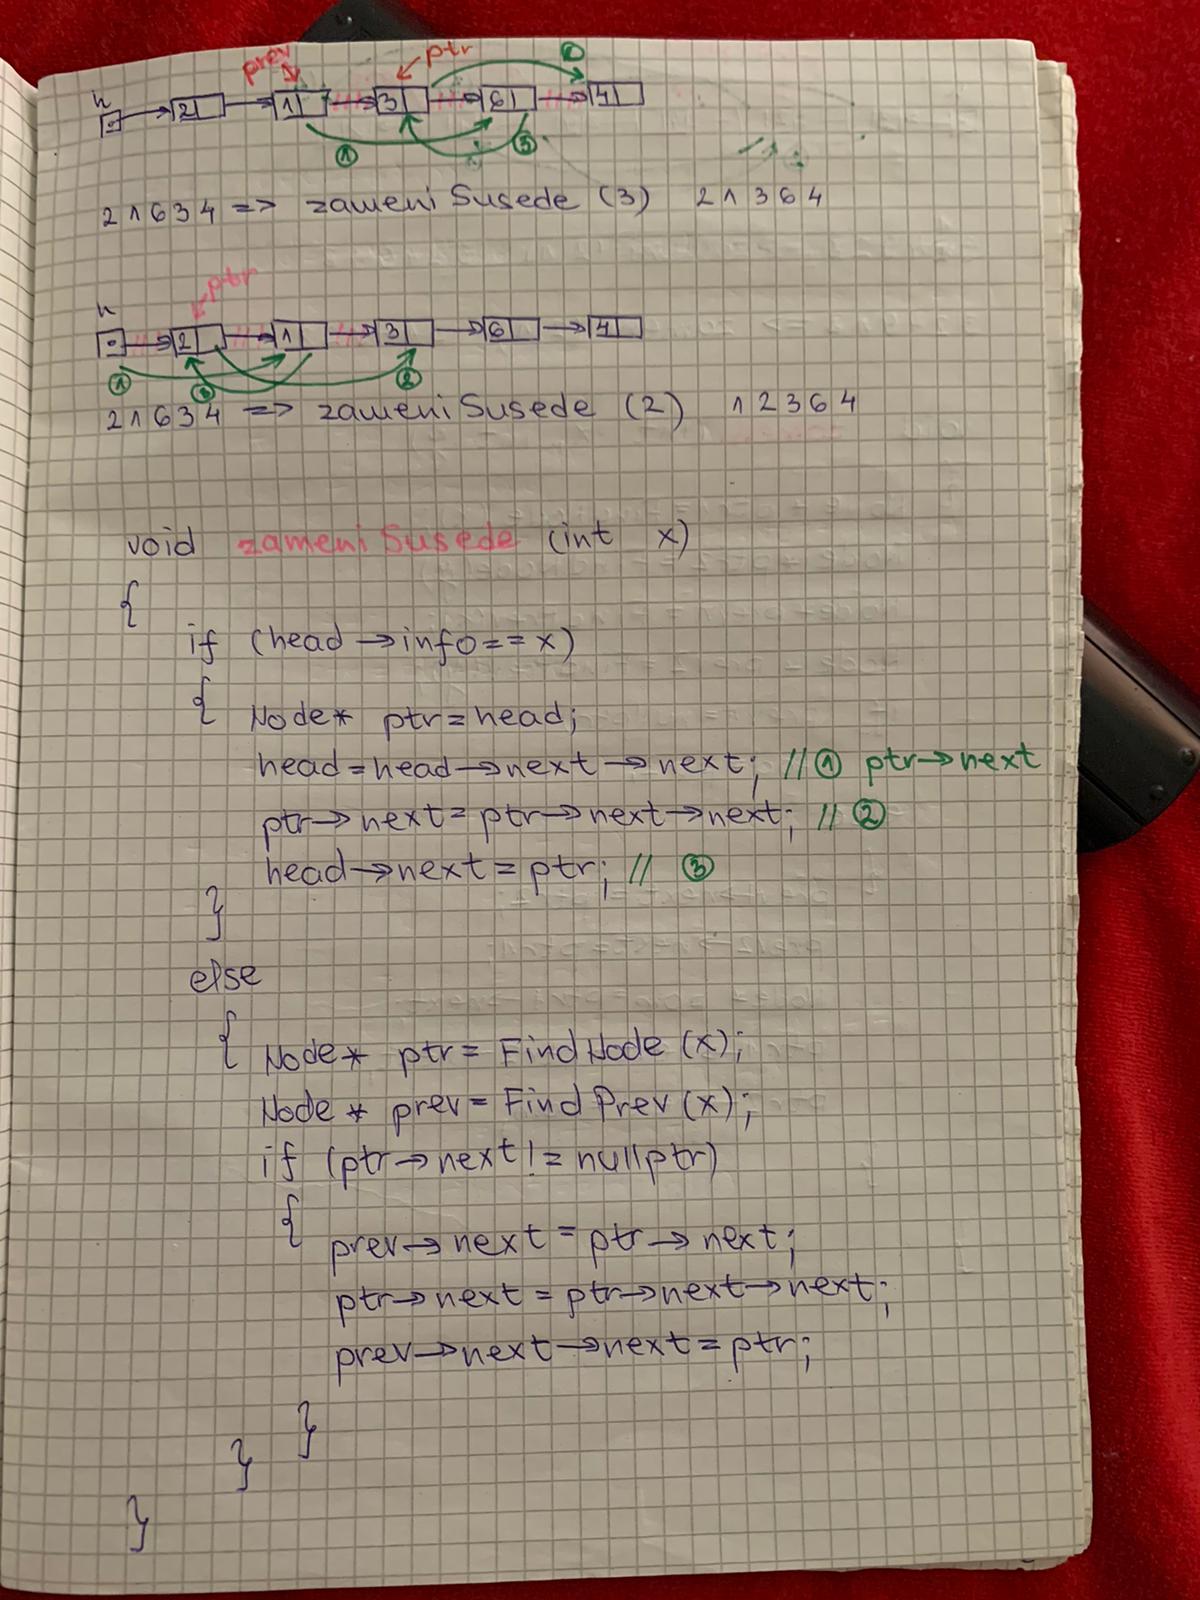 prev ptr
h 2 1 3 6 4
① ③
2 1 6 3 4 => zameniSusede (3) 2 1 3 6 4
ptr
h
2 1 3 6 4
① ③ ②
2 1 6 3 4 => zameniSusede (2) 1 2 3 6 4
void zameniSusede (int x)
{
if (head->info==x)
{ Node* ptr=head;
head=head->next->next; // ① ptr->next
ptr->next=ptr->next->next; // ②
head->next=ptr; // ③
}
else
{ Node* ptr= FindNode (x);
Node* prev= FindPrev (x);
if (ptr->next!=nullptr)
{
prev->next=ptr->next;
ptr->next=ptr->next->next;
prev->next->next=ptr;
}
}
}